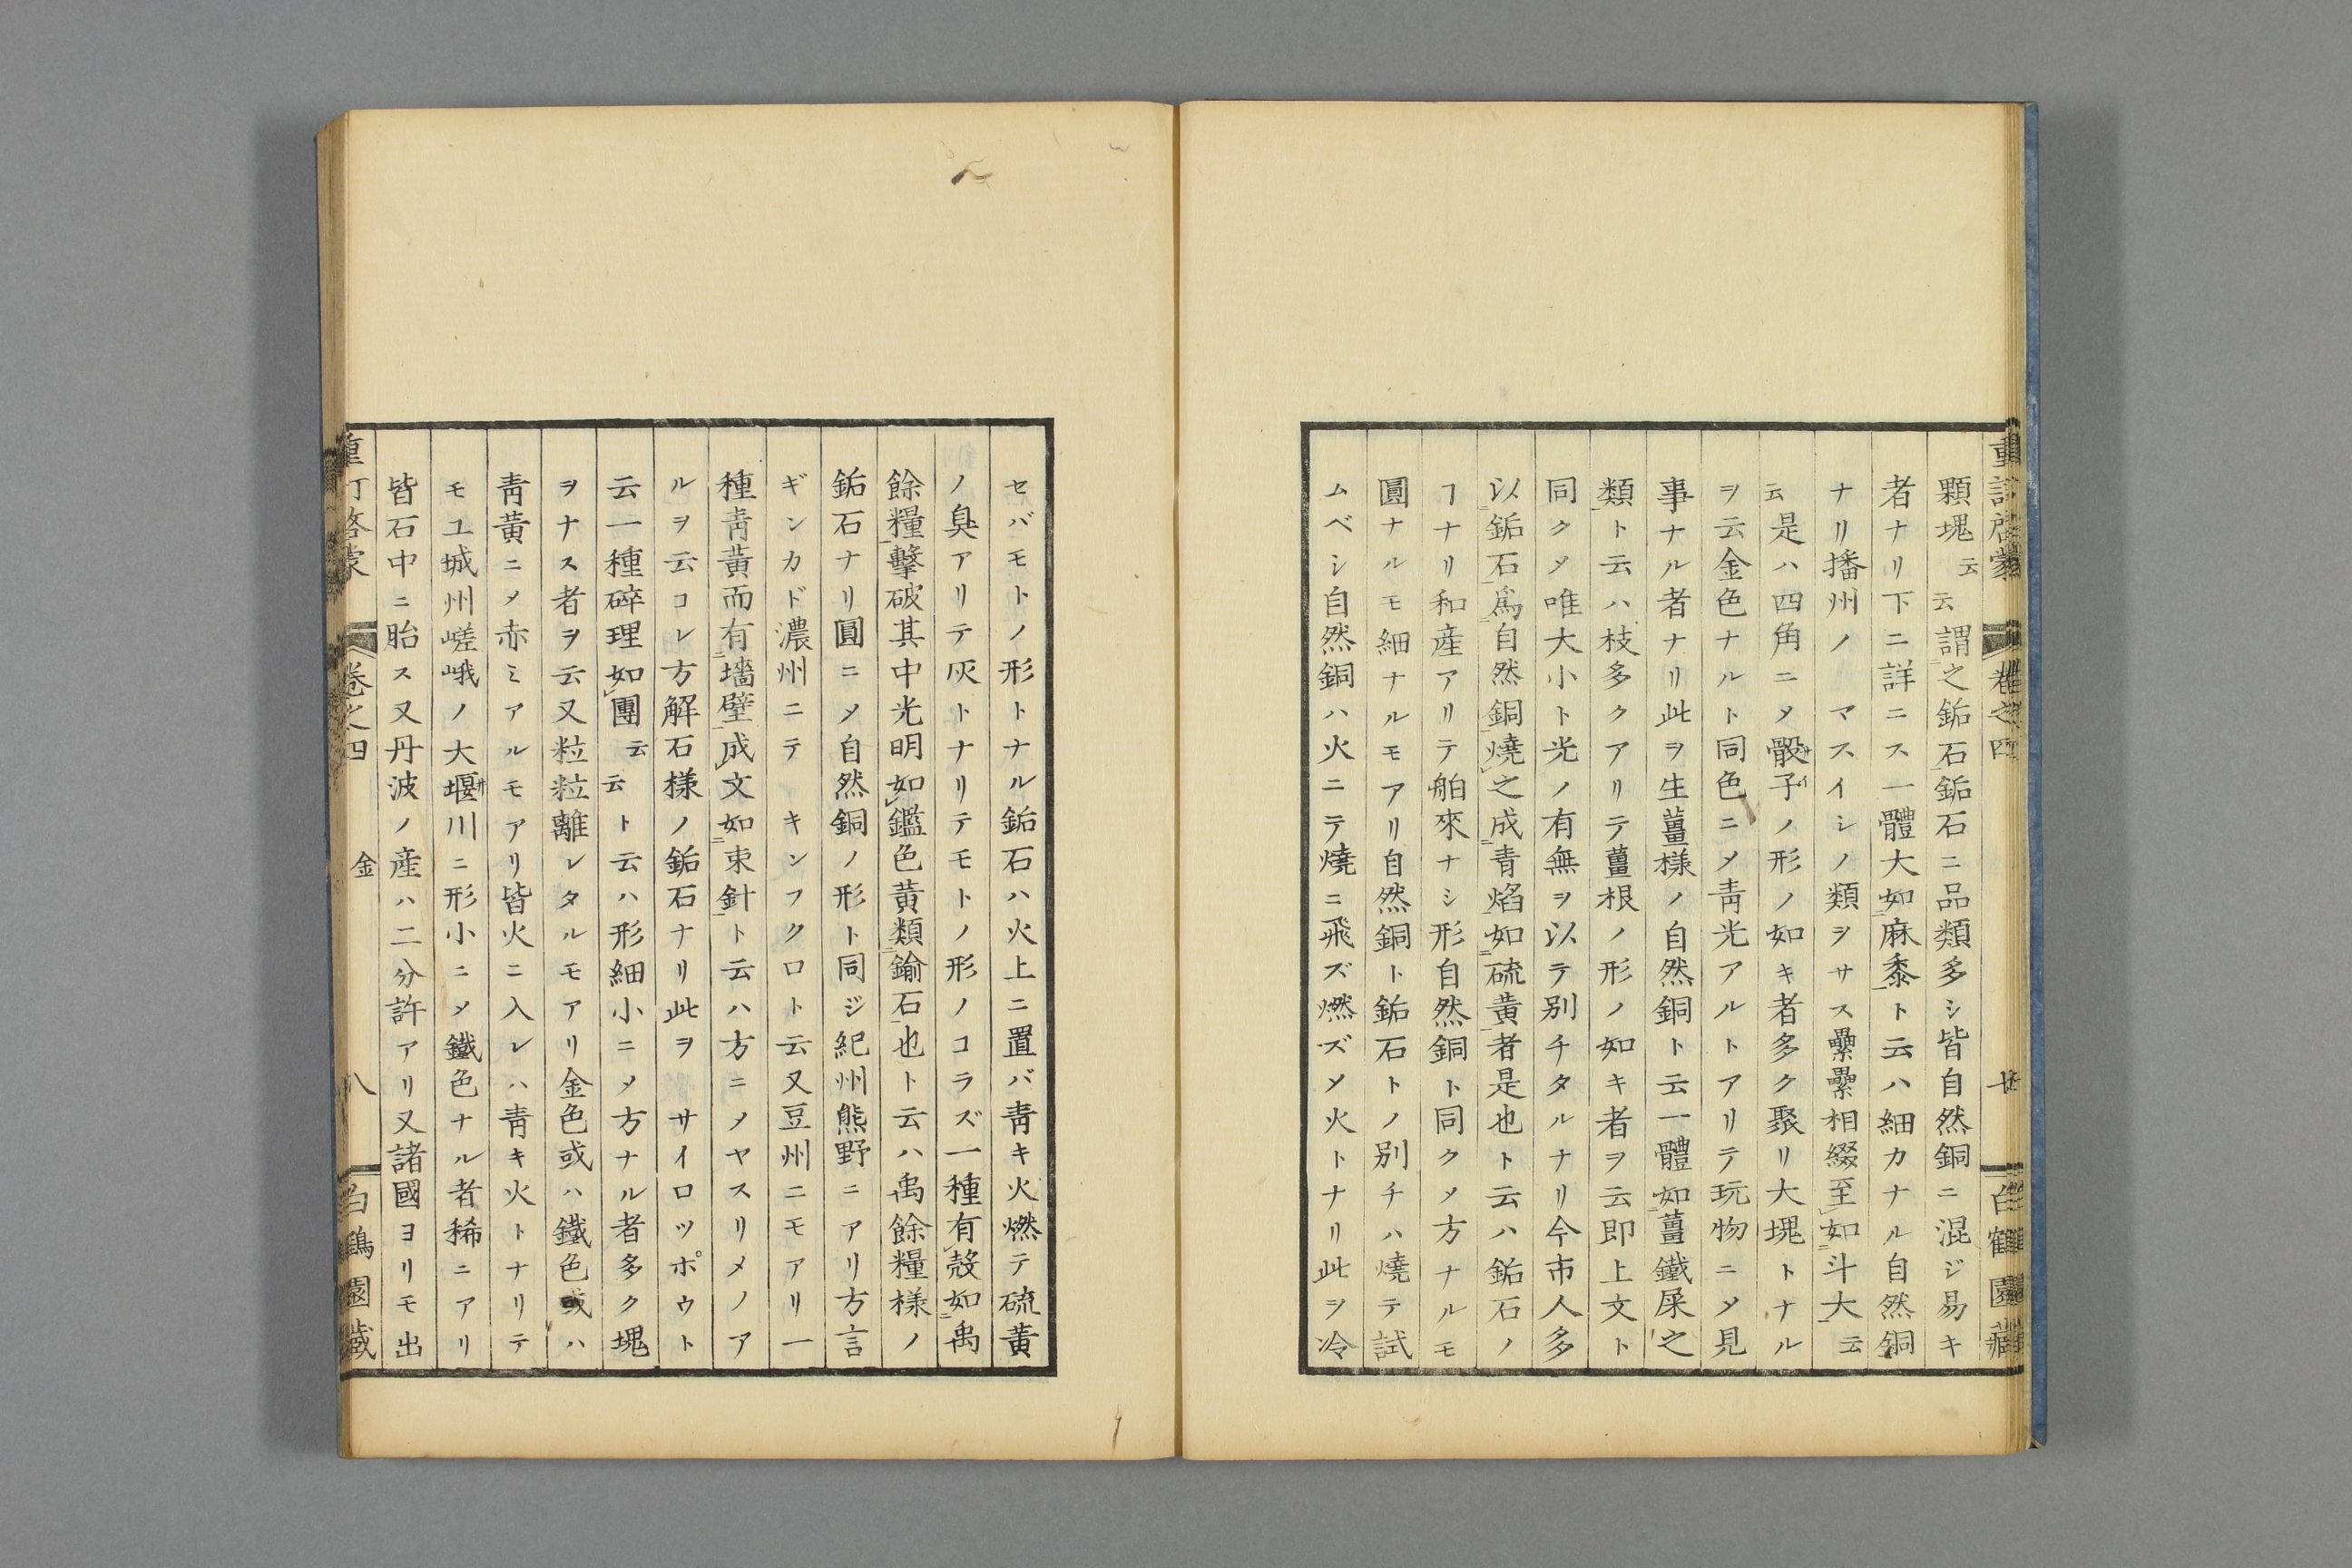 重訂啓蒙 卷之四 白鶴園藏
顆塊云云謂之鉐石鉐石ニ品類多シ皆自然銅ニ混ジ易キ
者ナリ下ニ詳ニス一體大如麻黍ト云ハ細カナル自然銅
ナリ播州ノマスイシノ類ヲサス纍纍相綴至如斗大云
云是ハ四角ニ〆骰子ノ形ノ如キ者多ク聚リ大塊トナル
ヲ云金色ナルト同色ニ〆靑光アルトアリテ玩物ニ〆見
事ナル者ナリ此ヲ生薑樣ノ自然銅ト云一體如薑鐵屎之
類ト云ハ枝多クアリテ薑根ノ形ノ如キ者ヲ云即上文ト
同ク〆唯大小ト光ノ有無ヲ以テ別チタルナリ今市人多
以鉐石爲自然銅燒之成青焰如硫黄者是也ト云ハ鉐石ノ
ヿナリ和産アリテ舶來ナシ形自然銅ト同ク〆方ナルモ
圓ナルモ細ナルモアリ自然銅ト鉐石トノ別チハ燒テ試
ムベシ自然銅ハ火ニテ燒ニ飛ズ燃ズ〆火トナリ此ヲ冷
セバモトノ形トナル鉐石ハ火上ニ置バ靑キ火燃テ硫黄
ノ臭アリテ灰トナリテモトノ形ノコラズ一種有殼如禹
餘糧擊破其中光明如鑑色黄類鍮石也ト云ハ禹餘糧樣ノ
鉐石ナリ圓ニ〆自然銅ノ形ト同ジ紀州熊野ニアリ方言
ギンカド濃州ニテキンフクロト云又豆州ニモアリ一
種靑黄而有墻壁成文如束針ト云ハ方ニ〆ヤスリメノア
ルヲ云コレ方解石樣ノ鉐石ナリ此ヲサイロツポウト
云一種碎理如團云云ト云ハ形細小ニ〆方ナル者多ク塊
ヲナス者ヲ云又粒粒離レタルモアリ金色或ハ鐵色或ハ
靑黄ニ〆赤ミアルモアリ皆火ニ入レハ靑キ火トナリテ
モユ城州嵯峨ノ大堰川ニ形小ニ〆鐵色ナル者稀ニアリ
皆石中ニ胎ス又丹波ノ産ハ二分許アリ又諸國ヨリモ出
重訂啓蒙 卷之四 金 八 白鶴園藏